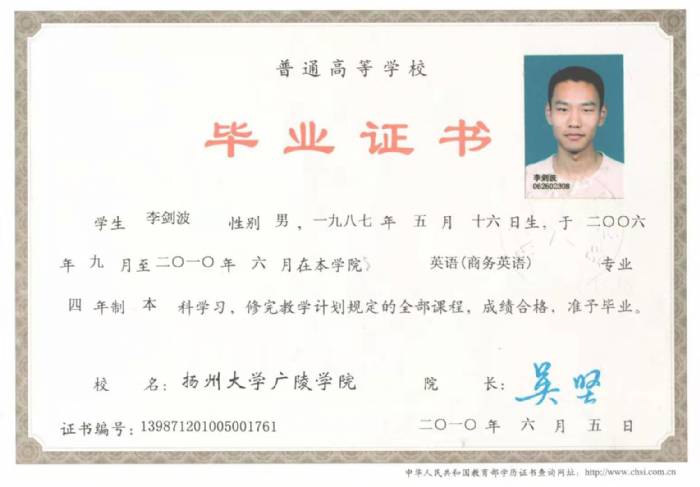 普通高等学校
毕业证书
李剑波
062602308
学生 李剑波 性别 男，一九八七年 五 月 十六日生，于二〇〇六
年 九 月至二〇一〇年 六 月在本学院 英语(商务英语) 专业
四 年制 本 科学习，修完教学计划规定的全部课程，成绩合格，准予毕业。
校 名：扬州大学广陵学院 院 长：吴坚
证书编号：139871201005001761 二〇一〇年 六 月 五 日
中华人民共和国教育部学历证书查询网址：http://www.chsi.com.cn